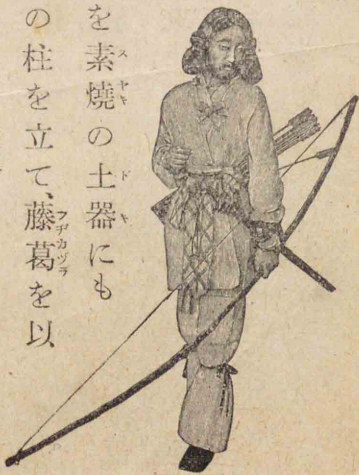 を素燒の土器にも
の柱を立て、藤葛を以